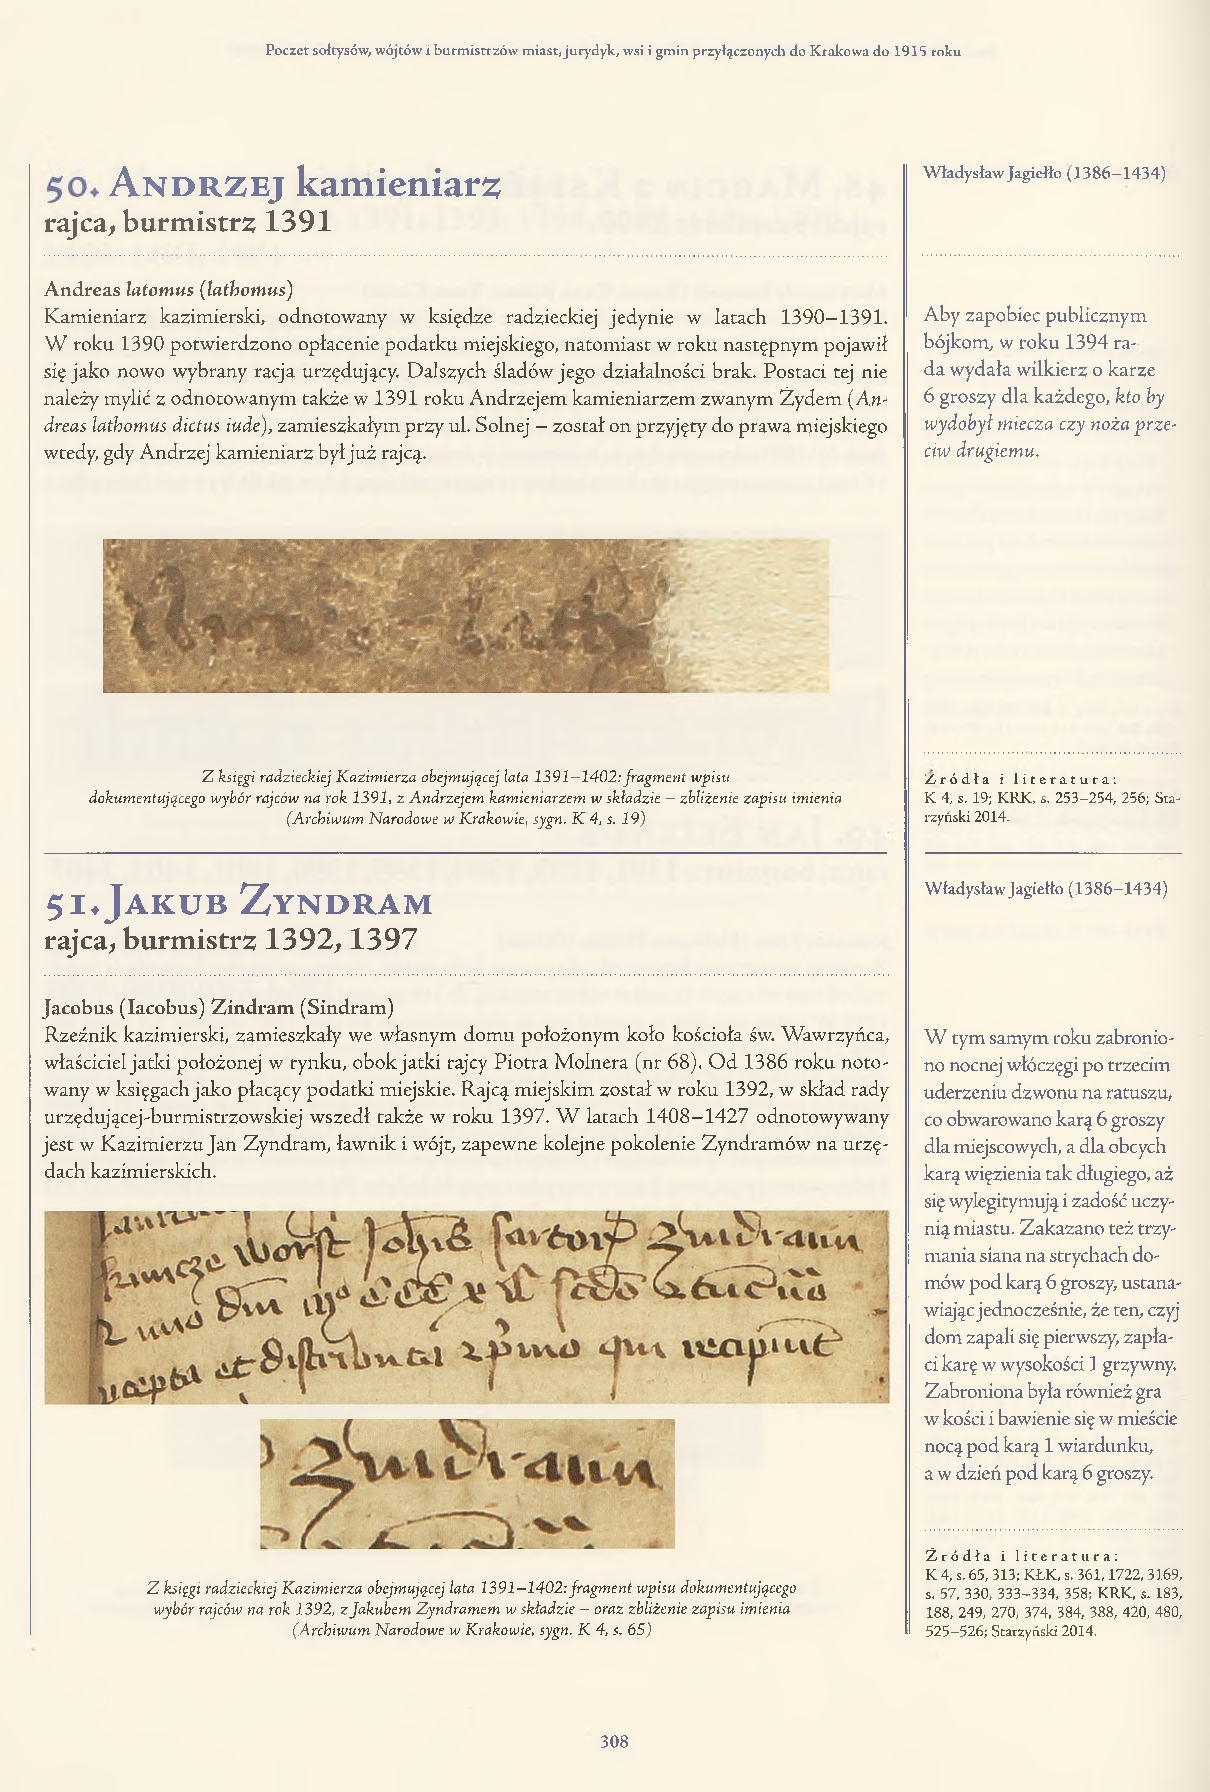 Poczet sołtysów, wójtów i burmistrzów miast, jurydyk, wsi i gmin przyłączonych do Krakowa do 1915 roku
50. Andrzej kamieniarz
rajca, burmistrz 1391
Andreas latomus (lathomus)
Kamieniarz kazimierski, odnotowany w księdze radzieckiej jedynie w latach 1390–1391.
W roku 1390 potwierdzono opłacenie podatku miejskiego, natomiast w roku następnym pojawił
się jako nowo wybrany racja urzędujący. Dalszych śladów jego działalności brak. Postaci tej nie
należy mylić z odnotowanym także w 1391 roku Andrzejem kamieniarzem zwanym Żydem (An-
dreas lathomus dictus iude), zamieszkałym przy ul. Solnej – został on przyjęty do prawa miejskiego
wtedy, gdy Andrzej kamieniarz był już rajcą.
Z księgi radzieckiej Kazimierza obejmującej lata 1391–1402: fragment wpisu
dokumentującego wybór rajców na rok 1391, z Andrzejem kamieniarzem w składzie – zbliżenie zapisu imienia
(Archiwum Narodowe w Krakowie, sygn. K 4, s. 19)
Władysław Jagiełło (1386–1434)
Aby zapobiec publicznym
bójkom, w roku 1394 ra-
da wydała wilkierz o karze
6 groszy dla każdego, kto by
wydobył miecza czy noża prze-
ciw drugiemu.
Źródła i literatura:
K 4, s. 19; KRK, s. 253–254, 256; Sta-
rzyński 2014.
51. Jakub Zyndram
rajca, burmistrz 1392, 1397
Jacobus (Iacobus) Zindram (Sindram)
Rzeźnik kazimierski, zamieszkały we własnym domu położonym koło kościoła św. Wawrzyńca,
właściciel jatki położonej w rynku, obok jatki rajcy Piotra Molnera (nr 68). Od 1386 roku noto-
wany w księgach jako płacący podatki miejskie. Rajcą miejskim został w roku 1392, w skład rady
urzędującej-burmistrzowskiej wszedł także w roku 1397. W latach 1408–1427 odnotowywany
jest w Kazimierzu Jan Zyndram, ławnik i wójt, zapewne kolejne pokolenie Zyndramów na urzę-
dach kazimierskich.
Z księgi radzieckiej Kazimierza obejmującej lata 1391–1402: fragment wpisu dokumentującego
wybór rajców na rok 1392, z Jakubem Zyndramem w składzie – oraz zbliżenie zapisu imienia
(Archiwum Narodowe w Krakowie, sygn. K 4, s. 65)
Władysław Jagiełło (1386–1434)
W tym samym roku zabronio-
no nocnej włóczęgi po trzecim
uderzeniu dzwonu na ratuszu,
co obwarowano karą 6 groszy
dla miejscowych, a dla obcych
karą więzienia tak długiego, aż
się wylegitymują i zadość uczy-
nią miastu. Zakazano też trzy-
mania siana na strychach do-
mów pod karą 6 groszy, ustana-
wiając jednocześnie, że ten, czyj
dom zapali się pierwszy, zapła-
ci karę w wysokości 1 grzywny.
Zabroniona była również gra
w kości i bawienie się w mieście
nocą pod karą 1 wiardunku,
a w dzień pod karą 6 groszy.
Źródła i literatura:
K 4, s. 65, 313; KŁK, s. 361, 1722, 3169,
s. 57, 330, 333–334, 358; KRK, s. 183,
188, 249, 270, 374, 384, 388, 420, 480,
525–526; Starzyński 2014.
308